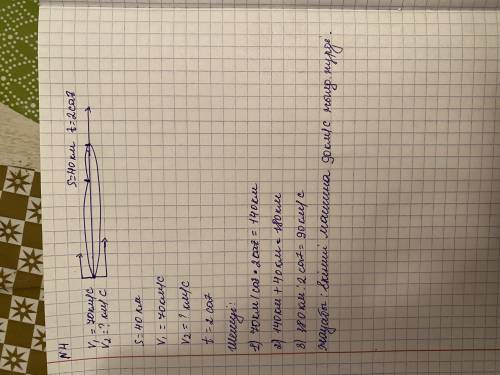 N4
S=40км t=2сағ
V₁=70км/с
V₂=? км/с
S=40 км
V₁=70км/с
V₂=? км/с
t=2сағ
Шешуі:
1) 70км/сағ•2сағ=140км
2) 140км+40км=180км
3) 180км:2сағ=90км/с
Жауабы: екінші машина 90км/с жылд. жүрді.